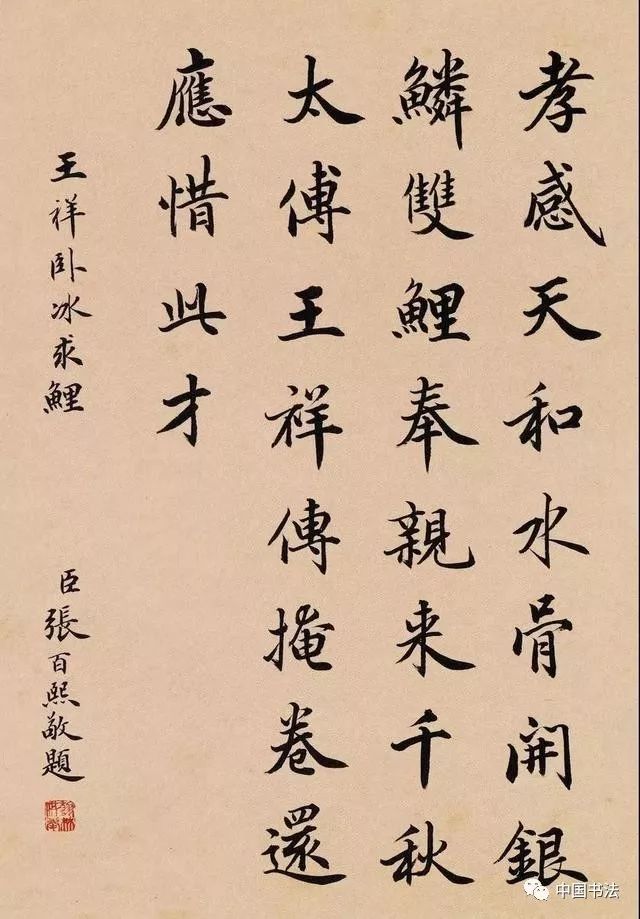 孝感天和水骨開銀
鱗雙鯉奉親来千秋
太傅王祥傳掩卷還
應惜此才
王祥卧冰求鯉
臣張百熙敬題
中国书法